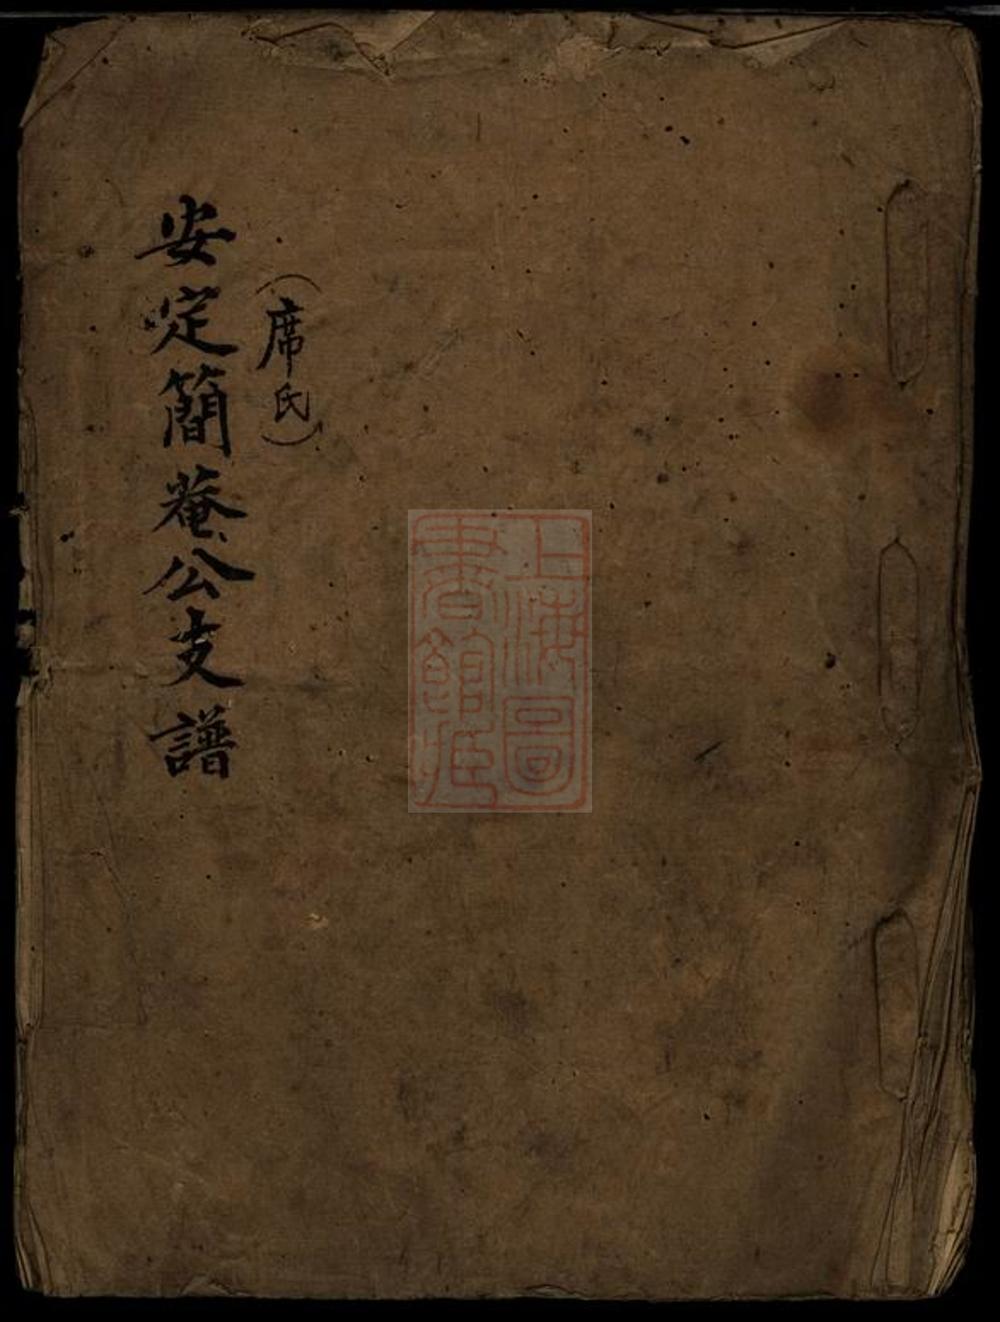 （席氏）
安定簡菴公支譜
上海圖
書館藏